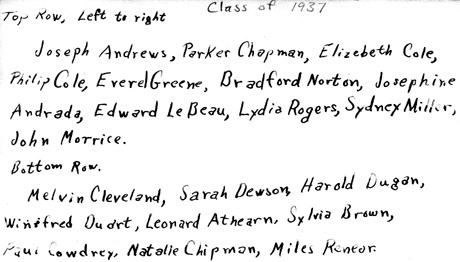 Class of 1937
Top Row, Left to right
Joseph Andrews, Parker Chapman, Elizebeth Cole,
Philip Cole, Everel Greene, Bradford Norton, Josephine
Andrada, Edward Le Beau, Lydia Rogers, Sydney Miller,
John Morrice.
Bottom Row.
Melvin Cleveland, Sarah Dewson, Harold Dugan,
Winifred Duart, Leonard Athearn, Sylvia Brown,
Paul Cowdrey, Natalie Chipman, Miles